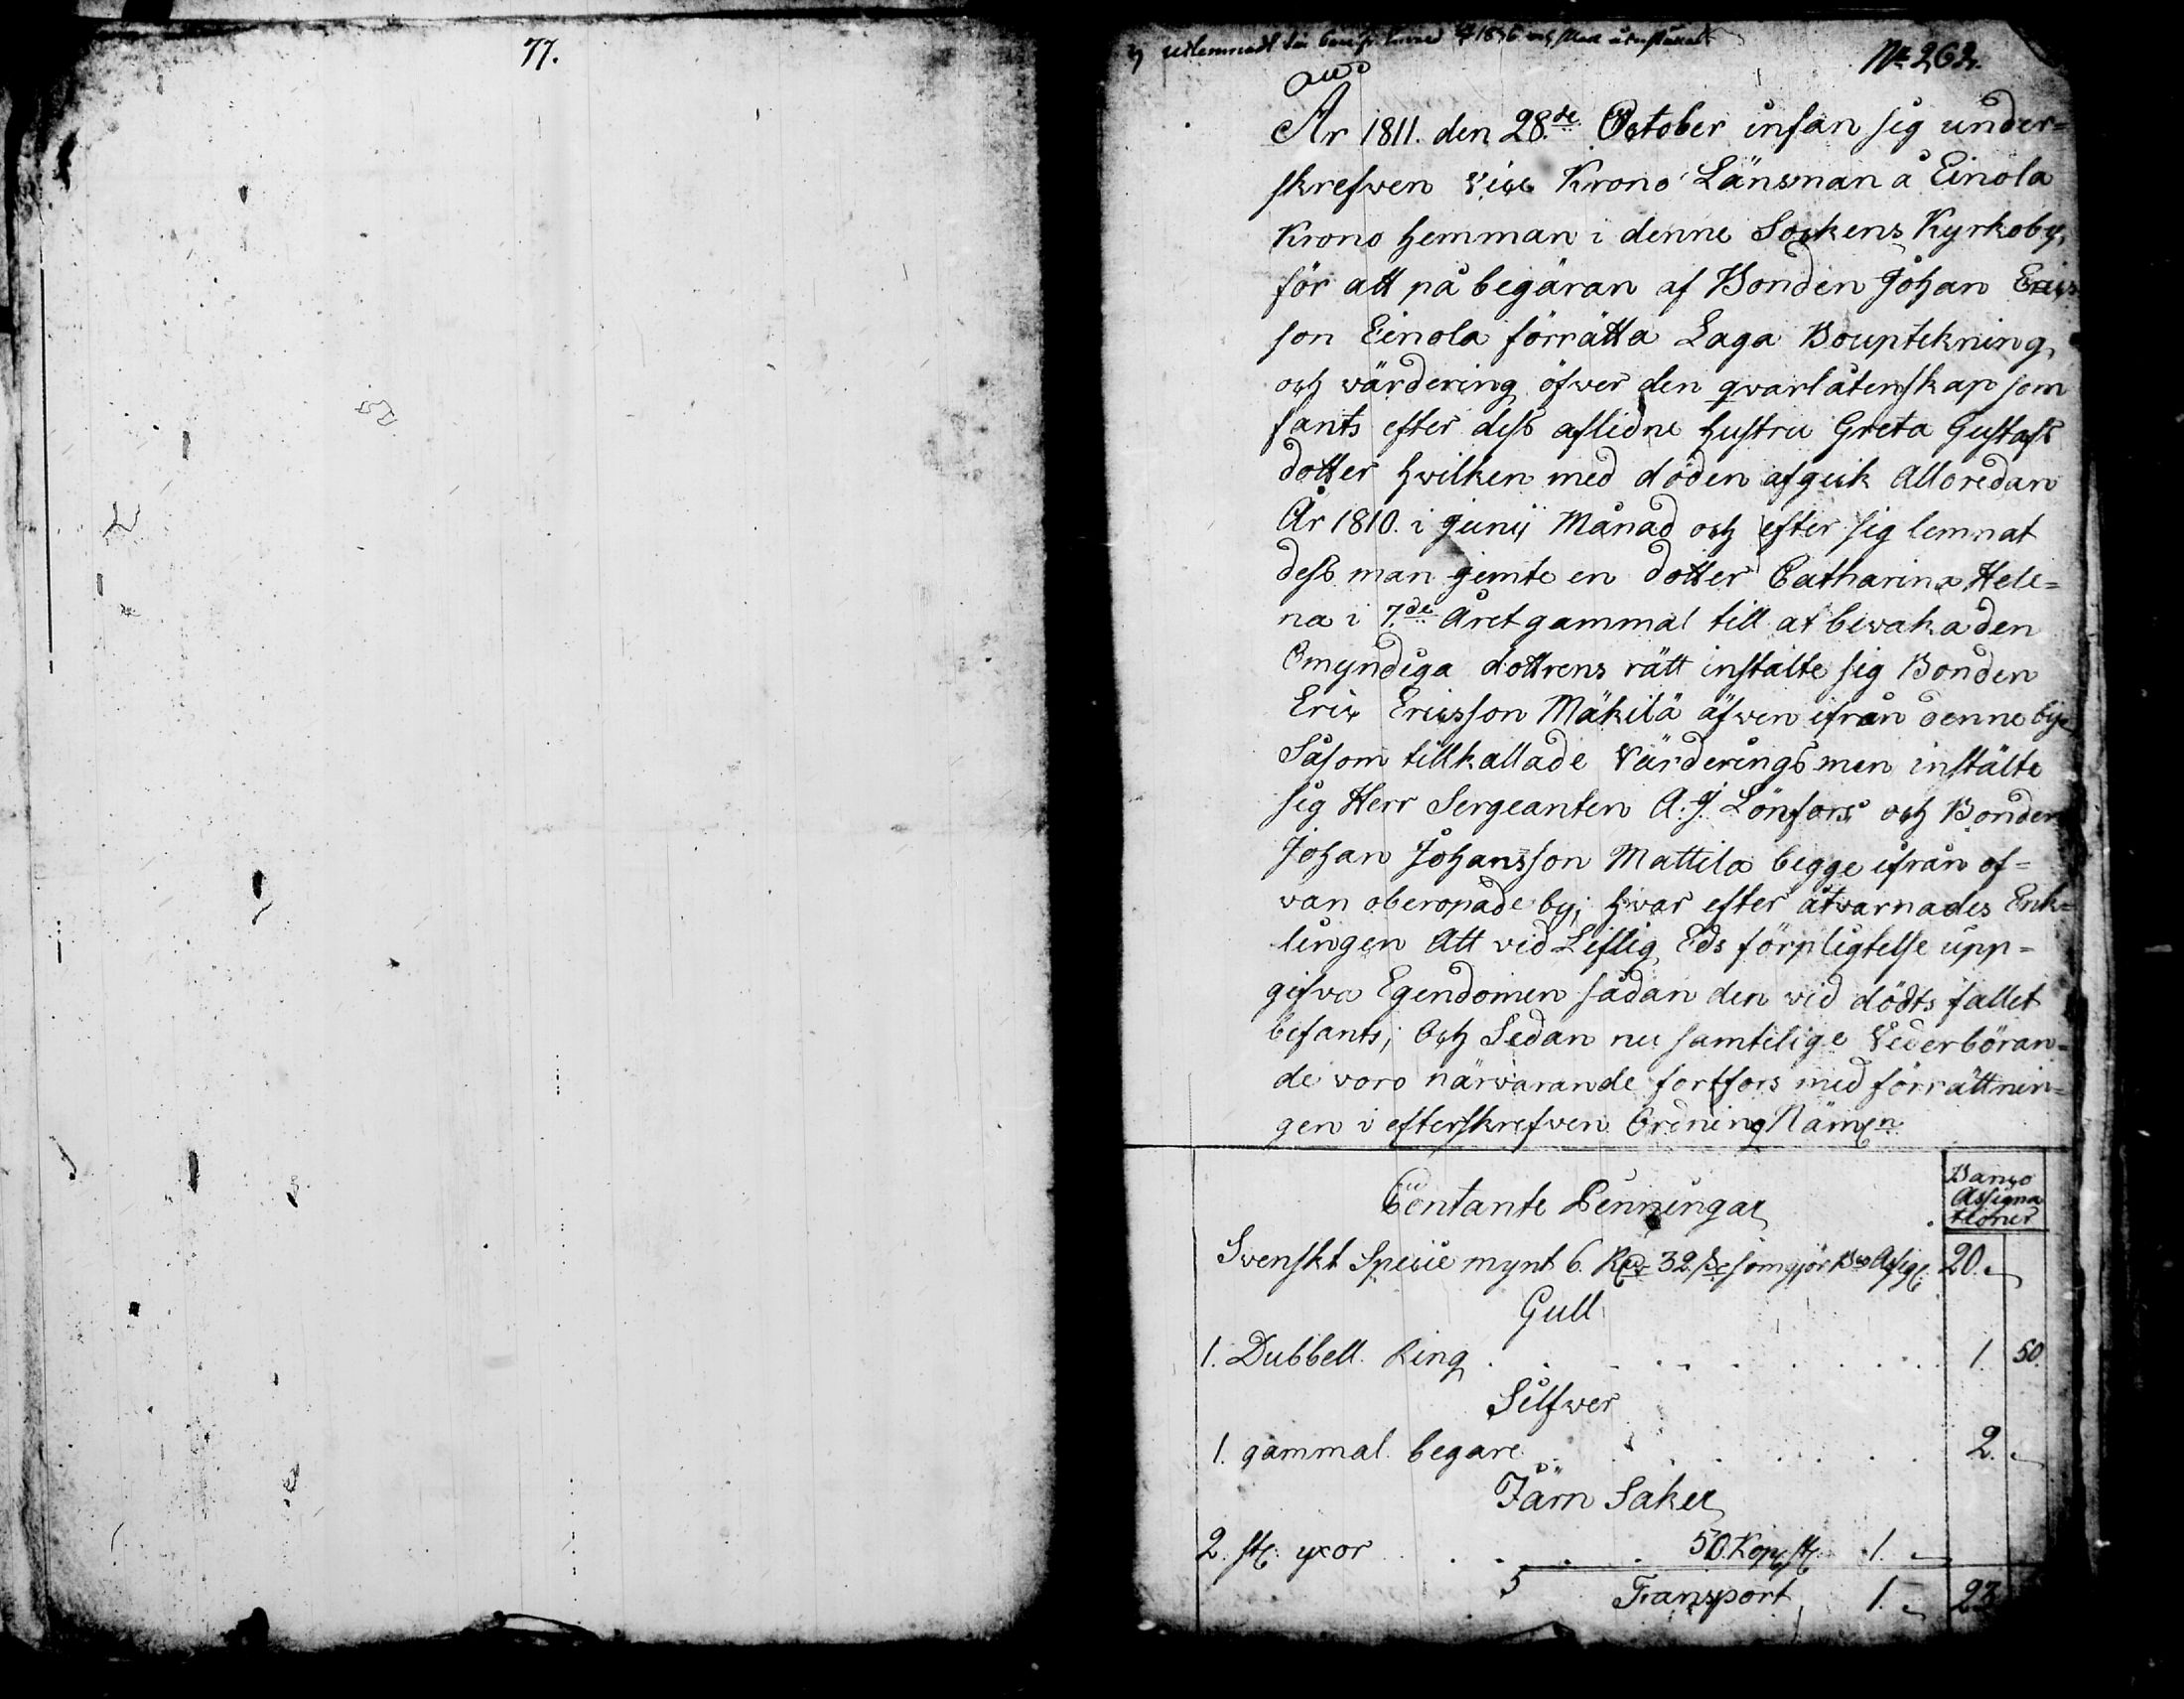 77.
№ 262.
År 1811. den 28.de October infan sig under=
skrefwen Vice Krono Länsman å Einola
Krono hemman i denne Sockens Kyrkoby,
för att på begäran af Bonden Johan Erics
son Einola förrätta Laga Bouptekning,
och värdering öfwer den qwarlåtenskap som
fants efter dess aflidne hustru Greta Gustafs
dotter hwilken med döden afgick Alloredan
År 1810. i Junij Månad och efter sig lemnat
dess man jemte en dotter Catharina Hele=
na i 7.de Året gammal till at bevaka den
Omyndiga dottrens rätt instälte sig Bonden
Eric Ericsson Mäkilä äfwen ifrån denne by,
Såsom tillkallade Värderings men instälte
sig Herr Sergeanten A. J. Lönfors och Bonden
Johan Johansson Mattila begge ifrån of=
van oberopade by; hwar efter åtvarnades Enk=
lingen Att vid Liflig Eds förpligtelse upp=
gifva Egendomen sådan den vid dödts fallet
befants; Och Sedan nu samtelige Vederböran=
de voro närvarande fortfors med förrättnin=
gen i efterskrefwen Ordning Näml:n
Banco
Assigna
tioner
Contante Penningar
Svenskt Specie mynt 6. Rdr 32 s som gör Bco Assig: 20. „
Gull
1. Dubbell Ring . . . . . . . . . 1. 50
Silfwer
1. gammal begare . . . . . . . 2. „
Järn Saker
2. st: yxor . . . . . 50. Kop st: 1. „
5 Transport 1. „ 23